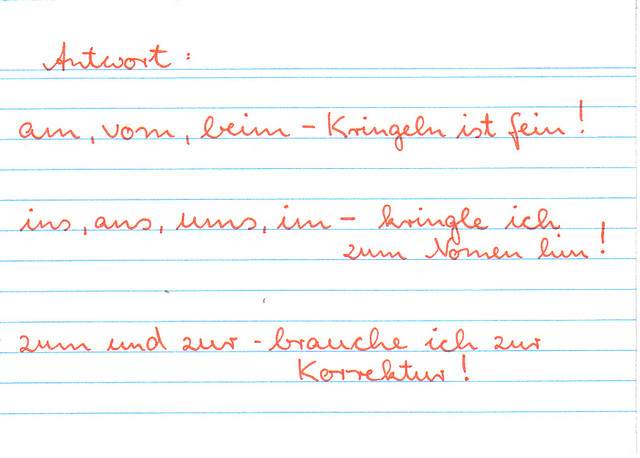 Antwort:
am, vom, beim - Kringeln ist fein!
ins, ans, ums, im - kringle ich
zum Nomen hin!
zum und zur - brauche ich zur
Korrektur!